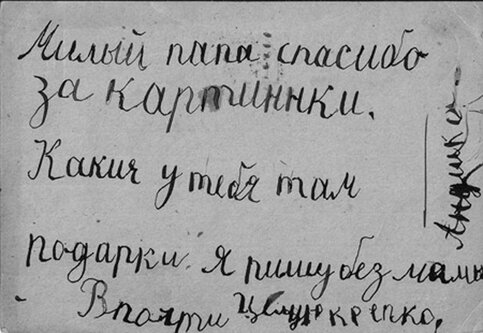 Милый папа спасибо
за картиннки.
Какия у тебя там
подарки. я пишу без мамы
целую крепко,